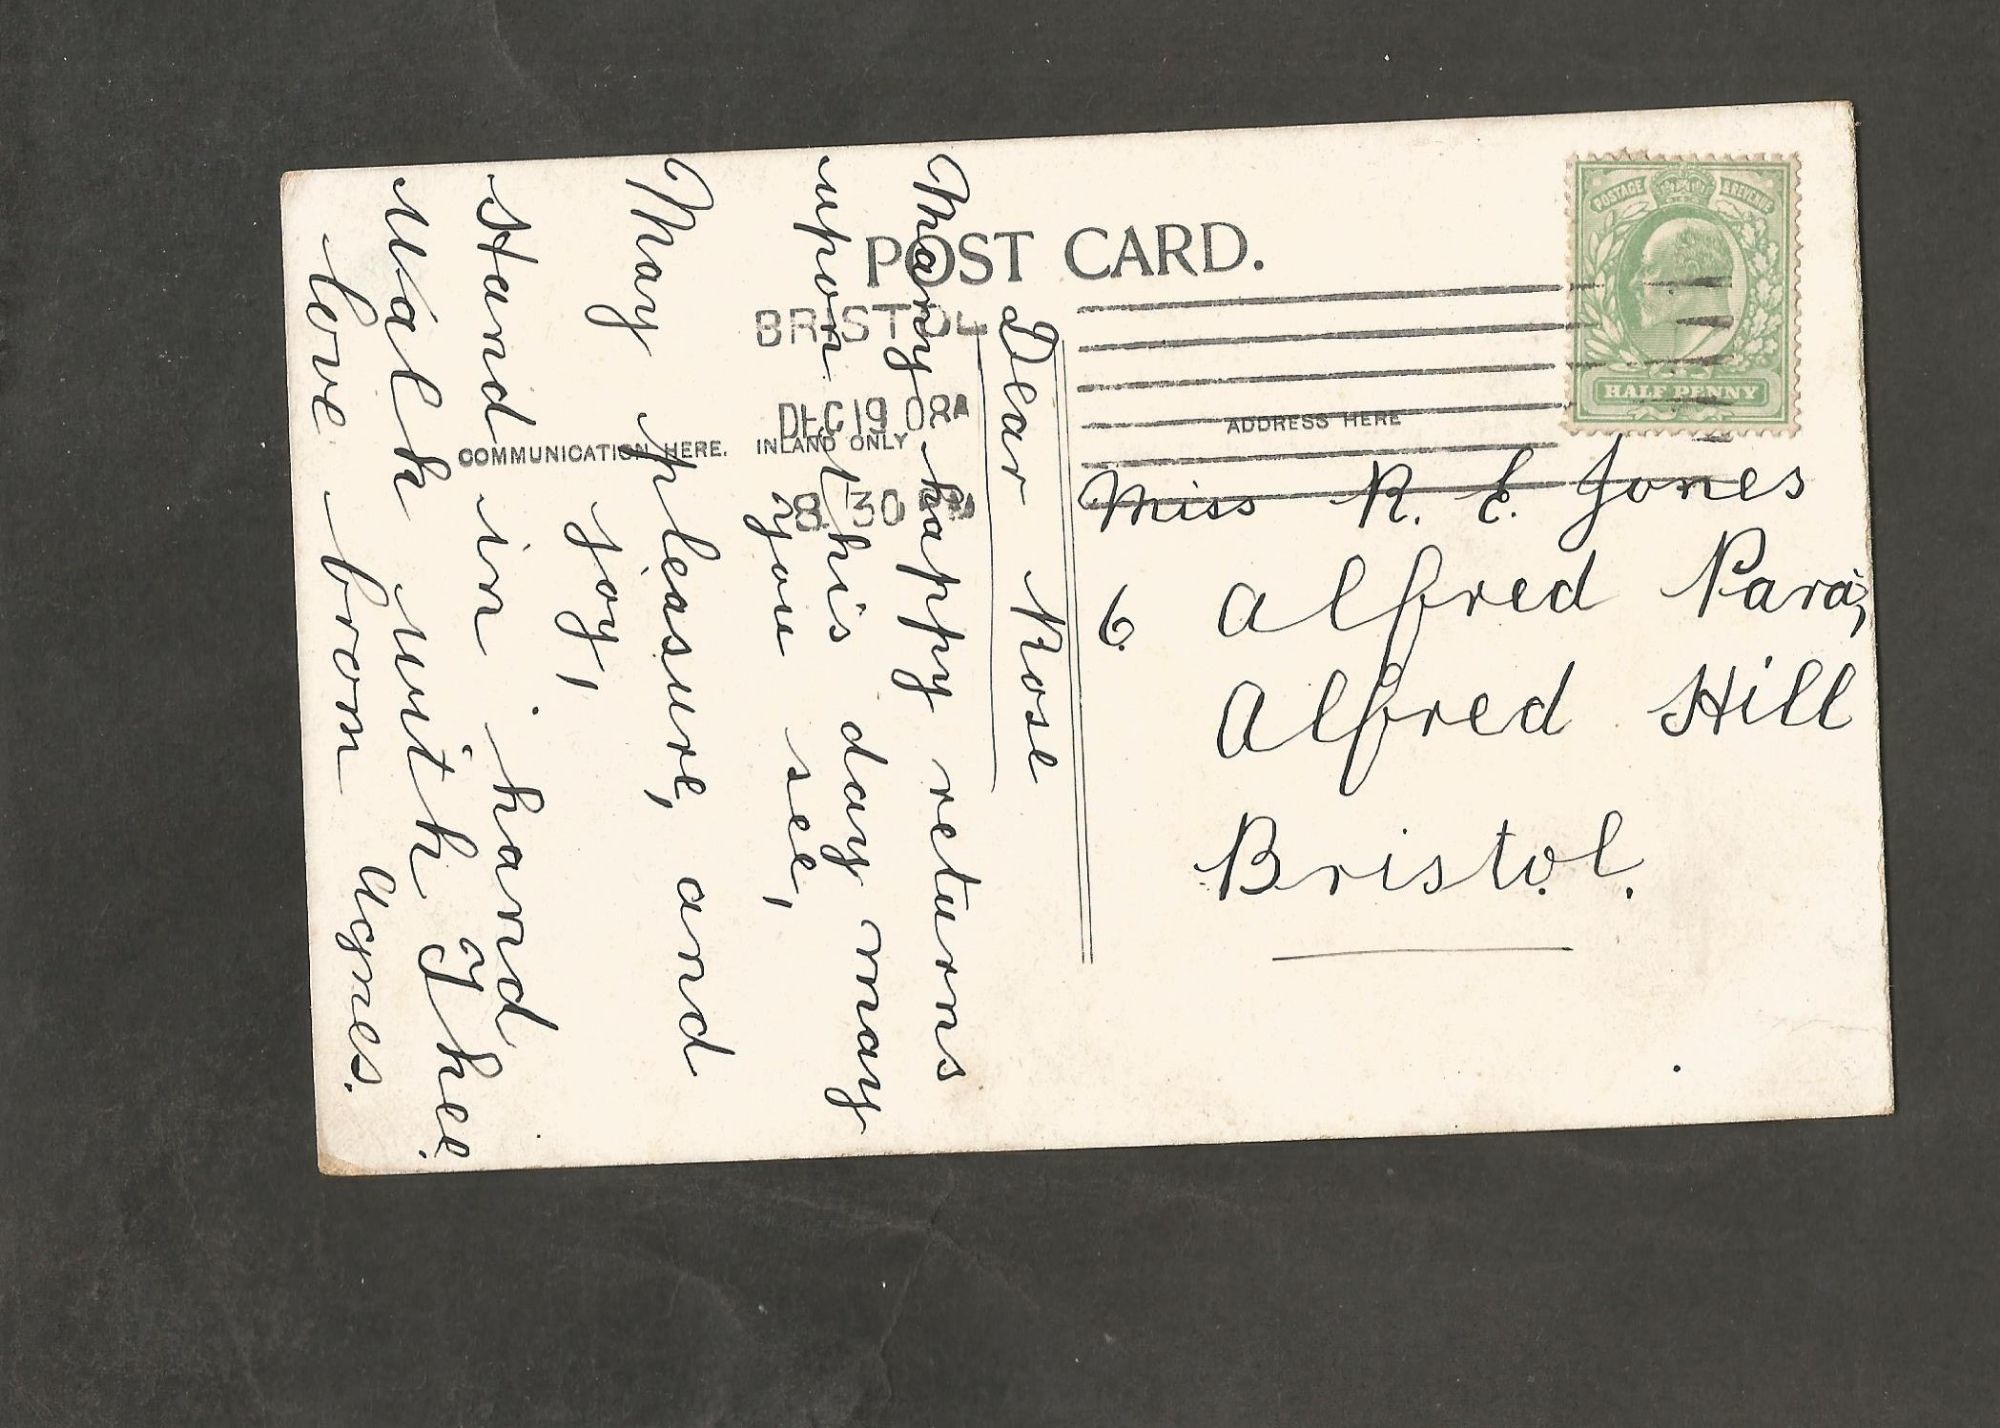 POST CARD.
POSTAGE & REVENUE
HALF PENNY
BRISTOL
DEC 19 08
8. 30
COMMUNICATION HERE. INLAND ONLY
ADDRESS HERE
Miss R. E. Jones
6. Alfred Para;
Alfred Hill
Bristol.
Dear Rose
Many happy returns
upon this day may
you see,
May pleasure, and
joy,
Hand in hand
Walk with Thee.
love from Agnes.